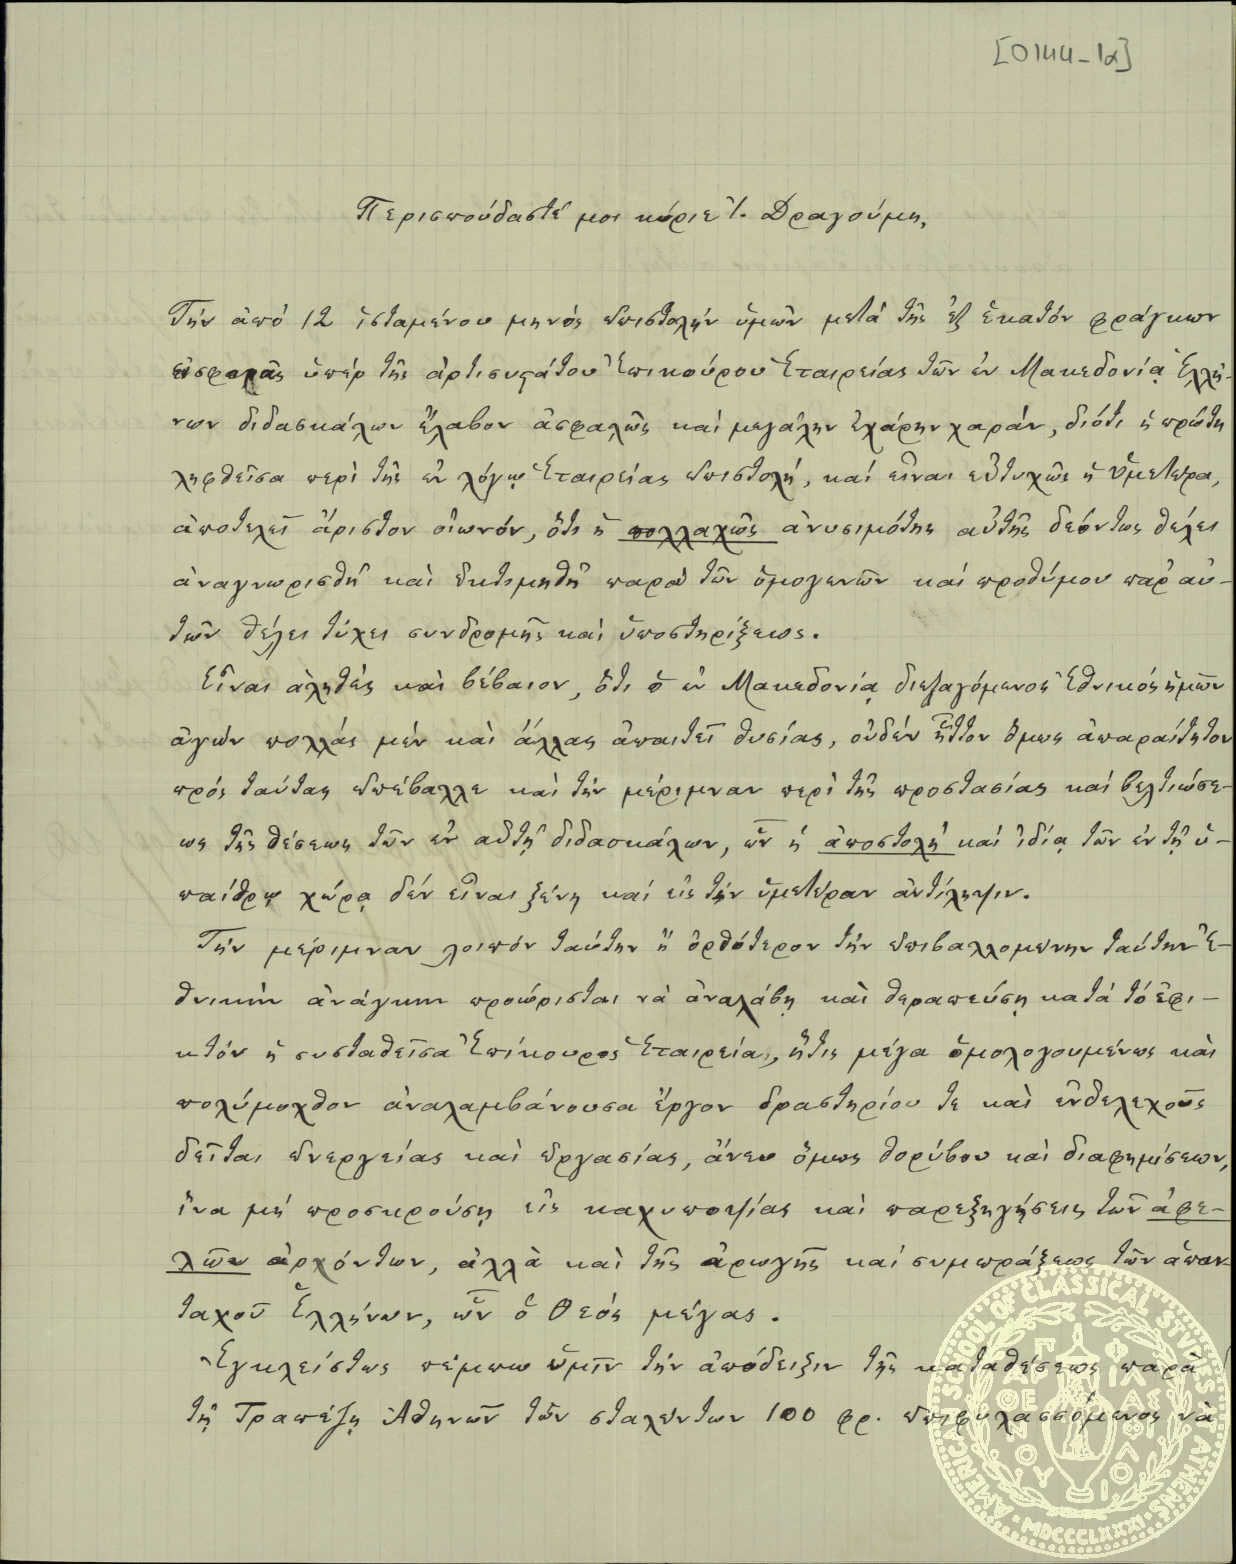 [0144-1α]
Περισπούδαστέ μοι κύριε Ἰ. Δραγούμη,
Τήν ἀπό 12 ἱσταμένου μηνός ἐπιστολήν ὑμῶν μετά τῆς ἐξ ἑκατόν φράγκων
εἰσφορᾶς ὑπέρ τῆς ἀρτισυστάτου Ἐπικούρου Ἑταιρείας τῶν ἐν Μακεδονίᾳ Ἑλλή-
νων διδασκάλων ἔλαβον ἀσφαλῶς καί μεγάλην ἐχάρην χαράν, διότι ἡ πρώτη
ληφθεῖσα περὶ τῆς ἐν λόγῳ Ἑταιρείας ἐπιστολή, καί εἶναι εὐτυχῶς ἡ Ὑμετέρα,
ἀποτελεῖ ἄριστον οἰωνόν, ὅτι ἡ πολλαχῶς ἀνυσιμότης αὐτῆς δεόντως θέλει
ἀναγνωρισθῆ καὶ ἐκτιμηθῆ παρὰ τῶν ὁμογενῶν καί προθύμου παρ' αὐ-
τῶν θέλει τύχει συνδρομῆς καὶ ὑποστηρίξεως.
Εἶναι ἀληθές καὶ βέβαιον, ὅτι ὁ ἐν Μακεδονίᾳ διεξαγόμενος Ἐθνικός ἡμῶν
ἀγών πολλάς μέν καὶ ἄλλας ἀπαιτεῖ θυσίας, οὐδέν ἧττον ὅμως ἀπαραίτητον
πρός ταύτας ἐπέβαλλε καὶ τήν μέριμναν περὶ τῆς προστασίας καί βελτιώσε-
ως τῆς θέσεως τῶν ἐν αὐτῇ διδασκάλων, ὧν ἡ ἀποστολή καί ἰδίᾳ τῶν ἐν τῇ ὑ-
παίθρῳ χώρᾳ δέν εἶναι ξένη καί εἰς τήν ὑμετέραν ἀντίληψιν.
Τήν μέριμναν λοιπόν ταύτην ἤ ὀρθότερον τήν ἐπιβαλλομένην ταύτην Ἐ-
θνικήν ἀνάγκην προώρισται νὰ ἀναλάβῃ καὶ θεραπεύσῃ κατά τό ἐφι-
κτόν ἡ συσταθεῖσα Ἐπίκουρος Ἑταιρεία, ἥτις μέγα ὁμολογουμένως καὶ
πολύμοχθον ἀναλαμβάνουσα ἔργον δραστηρίου τε καὶ ἐνδελεχοῦς
δεῖται ἐνεργείας καὶ ἐργασίας, ἄνευ ὅμως θορύβου καὶ διαφημίσεων,
ἵνα μή προσκρούσῃ εἰς καχυποψίας καὶ παρεξηγήσεις τῶν ἀφε-
λῶν ἀρχόντων, ἀλλὰ καὶ τῆς ἀρωγῆς καί συμπράξεως τῶν ἁπαν-
ταχοῦ Ἑλλήνων, ὧν ὁ Θεός μέγας.
Ἐγκλείστως πέμπω ὑμῖν τήν ἀπόδειξιν τῆς καταθέσεως παρὰ
τῇ Τραπέζῃ Ἀθηνῶν τῶν σταλέντων 100 φρ. ἐπιφυλασσόμενος νὰ
AMERICAN SCHOOL OF CLASSICAL STUDIES AT ATHENS
MDCCCLXXXI